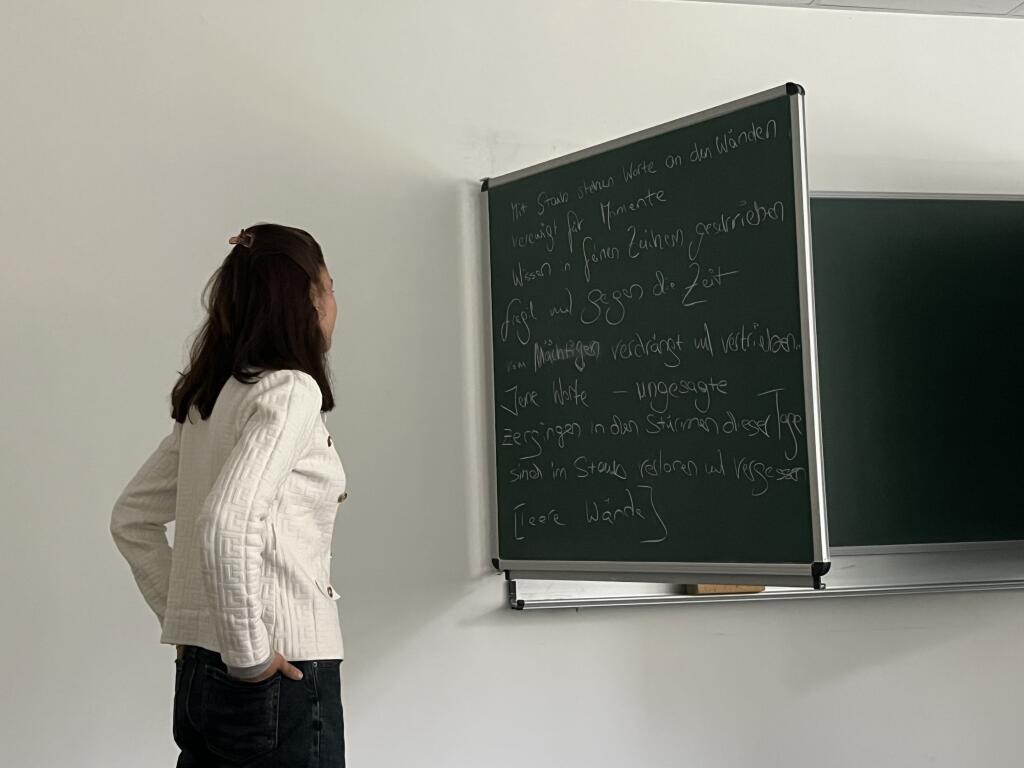 Mit Staub stehen Worte an den Wänden
verewigt für Momente
Wissen in feinen Zeichen geschrieben
fragil und gegen die Zeit
vom Mächtigen verdrängt und vertrieben.
Jene Worte – ungesagte
zergingen in den Stürmen dieser Tage
sind im Staub verloren und vergessen
[leere Wände]